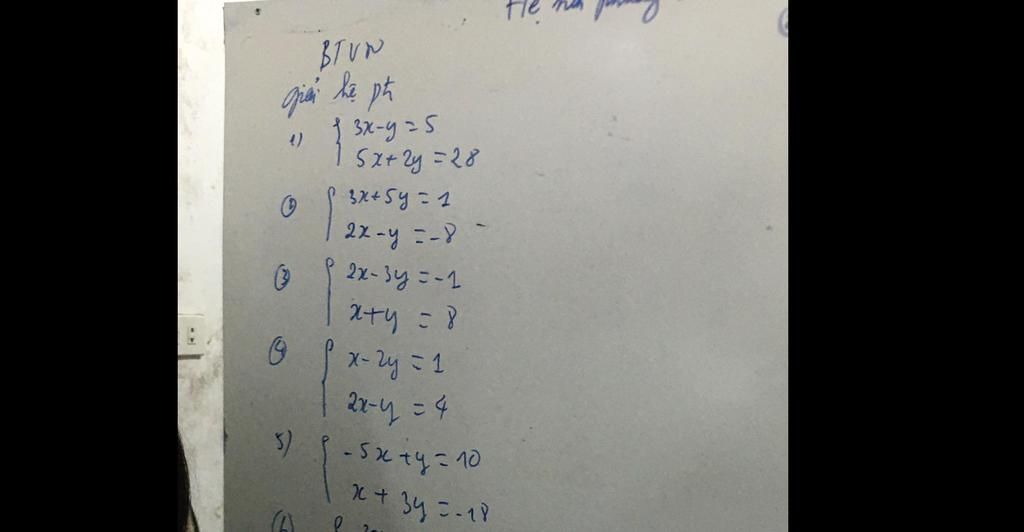 Hệ
BTVN
giải hệ pt
1) { 3x-y=5
5x+2y=28
② { 3x+5y=1
2x-y=-8
③ { 2x-3y=-1
x+y=8
④ { x-2y=1
2x-y=4
5) { -5x+y=10
x+3y=-18